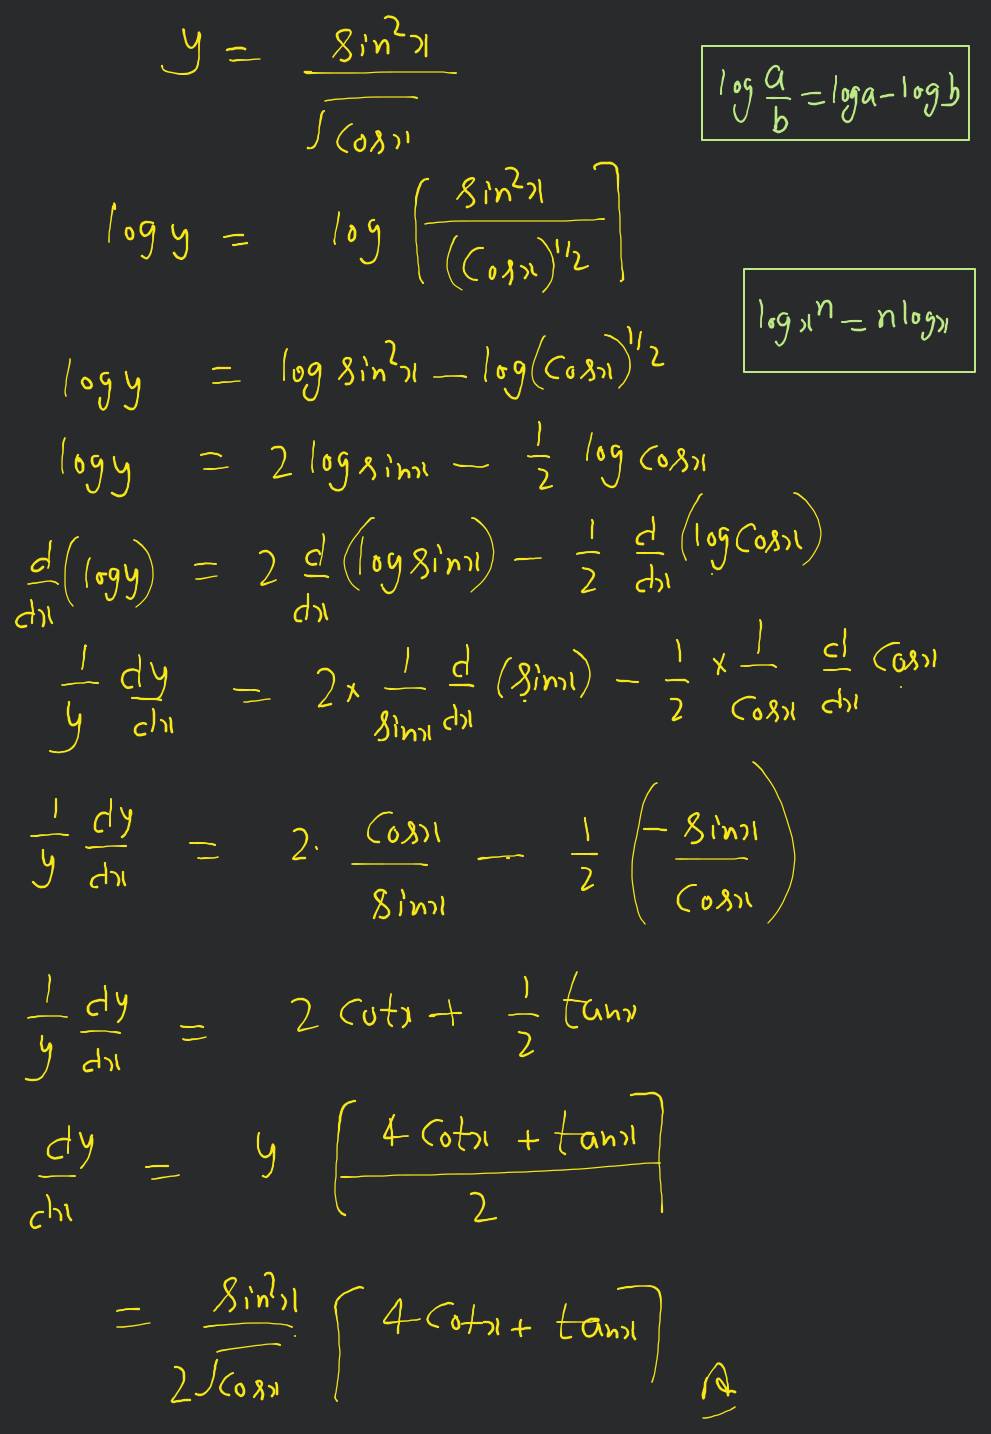 y = sin²x / √cosx
log a/b = log a - log b
log y = log [sin²x / (cosx)^1/2]
log xⁿ = n log x
log y = log sin²x - log(cosx)^1/2
log y = 2 log sinx - 1/2 log cosx
d/dx (log y) = 2 d/dx (log sinx) - 1/2 d/dx (log cosx)
1/y dy/dx = 2 × 1/sinx d/dx (sinx) - 1/2 × 1/cosx d/dx cosx
1/y dy/dx = 2. cosx/sinx - 1/2 (- sinx/cosx)
1/y dy/dx = 2 cotx + 1/2 tanx
dy/dx = y [4 cotx + tanx / 2]
= sin²x / 2√cosx [4 cotx + tanx] A